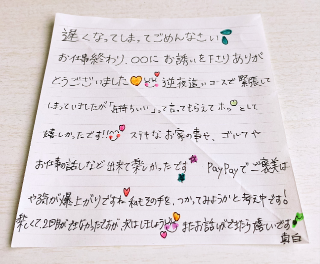 遅くなってしまってごめんなさい
お仕事終わり、〇〇に お誘いを下さりありが
とうございました 逆夜這いコースで緊張して
しまっていましたが「気持ちいい」って言ってもらえて ホッ として
嬉しかったです!! ステキなお家の事や、ゴルフや
お仕事の話しなど 出来て楽しかったです PayPayでご褒美は
や気が爆上がりですね 私もその手を、つかってみようかと考え中です!
楽しくて2回目ができなかったですが、次はしましょうね またお話しができたら嬉しいです
真白